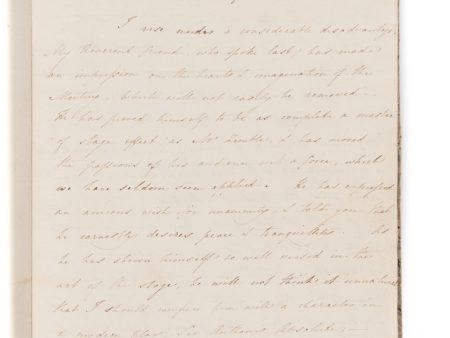 I rise under a considerable disadvantage.
My Reverend Friend, who spoke last, has made
an impression on the hearts & imagination of the
Meeting, which will not easily be removed.
He has proved himself to be as complete a master
of stage effect as Mr Kemble, & has moved
the passions of his audience with a force, which
we have seldom seen applied. He has expressed
an anxious wish for unanimity, & told you that
he earnestly desires peace & tranquillity. As
he has shewn himself so well versed in the
art of the stage, he will not think it unnatural
that I should compare him with a character in
a modern Play, Sir Anthony Absolute;—